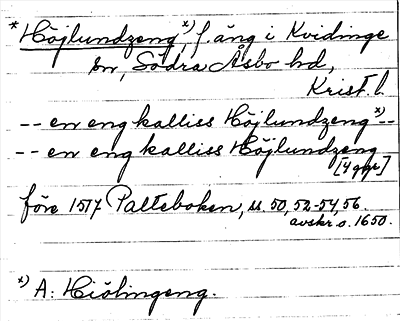 * Höjlundzeng x), f. äng i Kvidinge
sn, Södra Åsbo hd,
Krist. l.
-- en eng kalliss Höjlundzeng x)--
-- en eng kalliss Höjlundzeng
[4 ggr]
före 1517 Palteboken, s. 50, 52-54, 56.
avskr. o. 1650.
x) A: Hiölingeng.